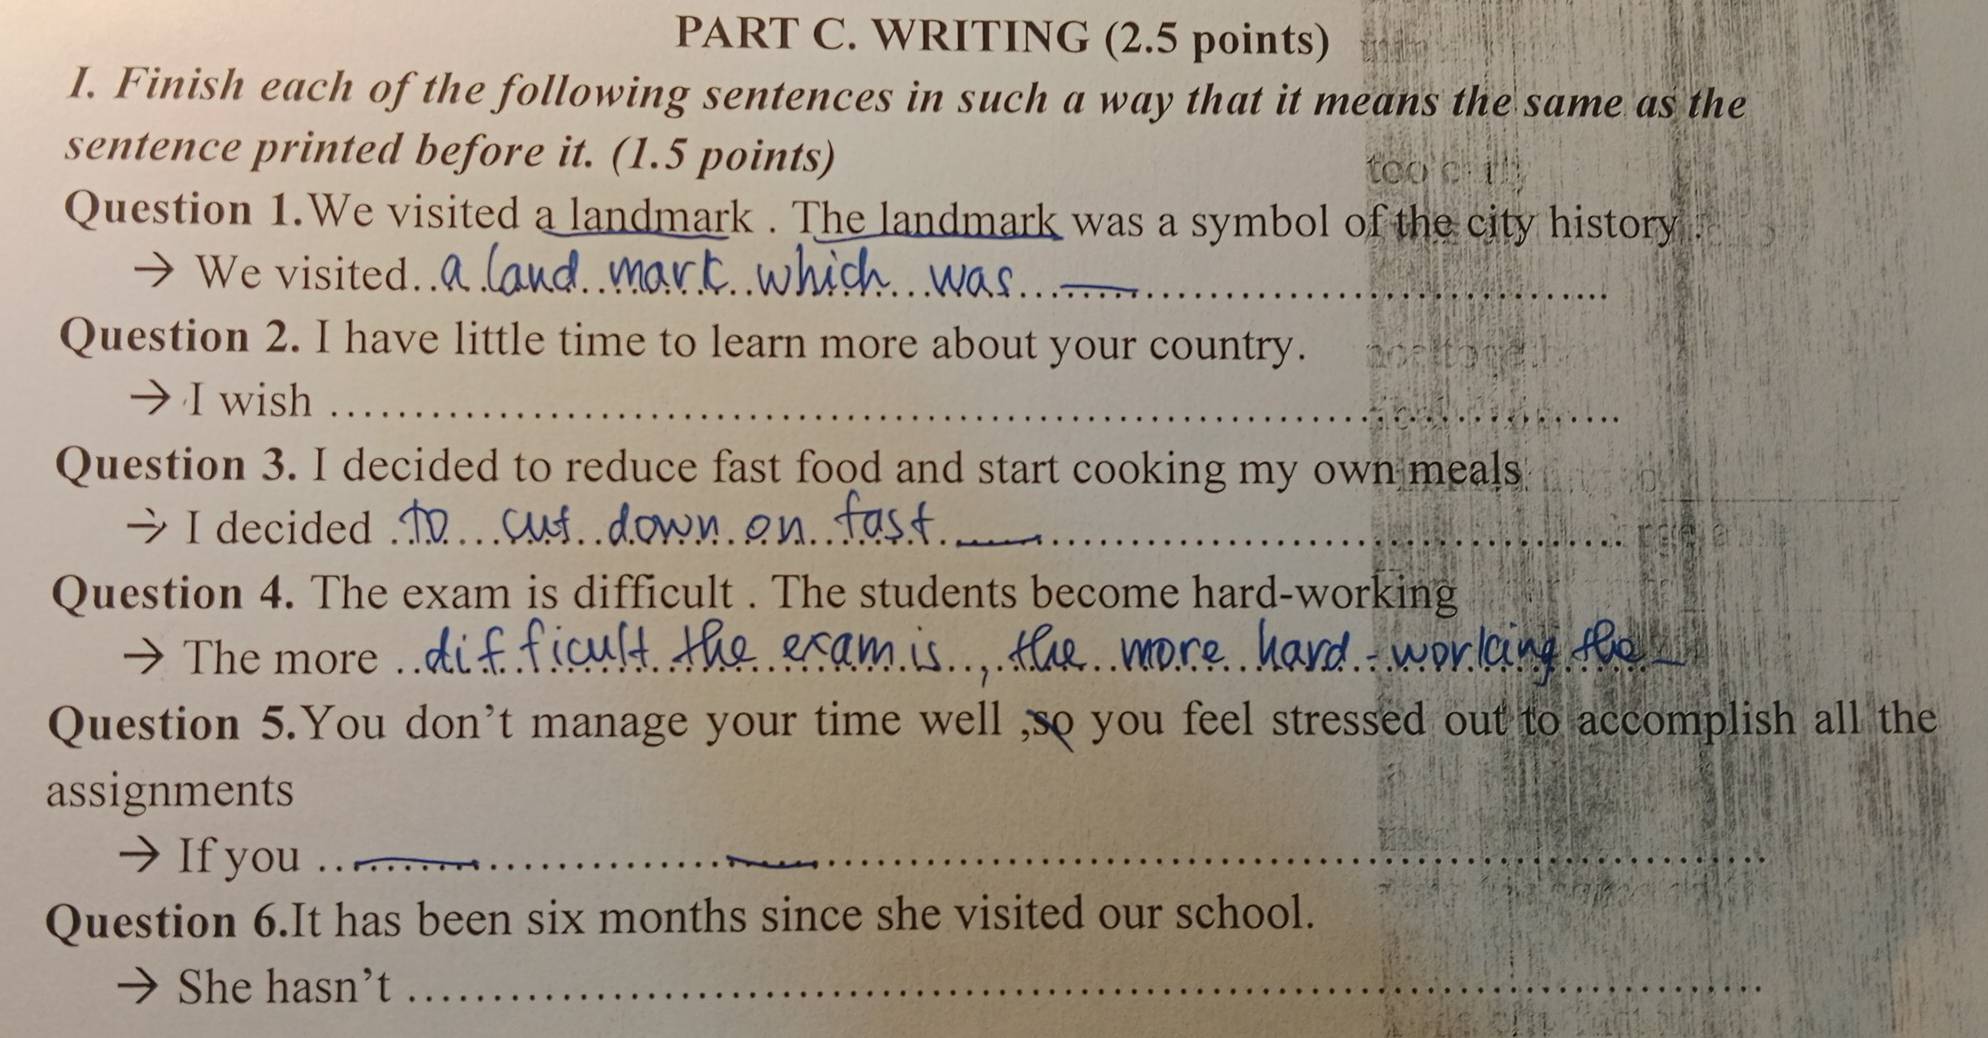 PART C. WRITING (2.5 points)
I. Finish each of the following sentences in such a way that it means the same as the
sentence printed before it. (1.5 points)
Question 1.We visited a landmark . The landmark was a symbol of the city history .
→ We visited..a land mark which was..........
Question 2. I have little time to learn more about your country.
→ I wish ..........
Question 3. I decided to reduce fast food and start cooking my own meals
→ I decided to cut down on fast..........
Question 4. The exam is difficult . The students become hard-working
→ The more ..difficult the exam is, the more hard-working the
Question 5.You don't manage your time well ,so you feel stressed out to accomplish all the
assignments
→ If you ..........
Question 6.It has been six months since she visited our school.
→ She hasn't ..........